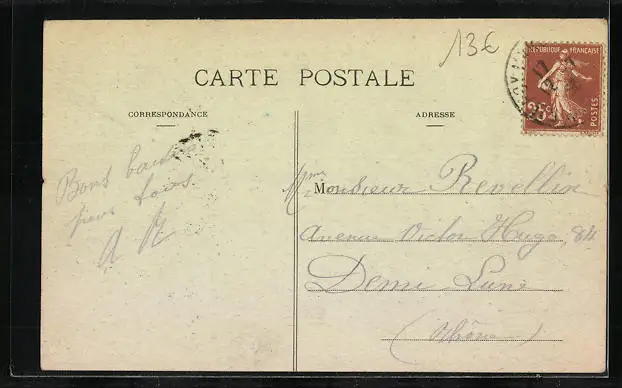 13€
RÉPUBLIQUE FRANÇAISE
25c
POSTES
17
CARTE POSTALE
CORRESPONDANCE
ADRESSE
Bons baisers
pour tous
A R
Mme Monsieur Revellin
Avenue Victor Hugo, 84
Demi Lune
(Rhône)